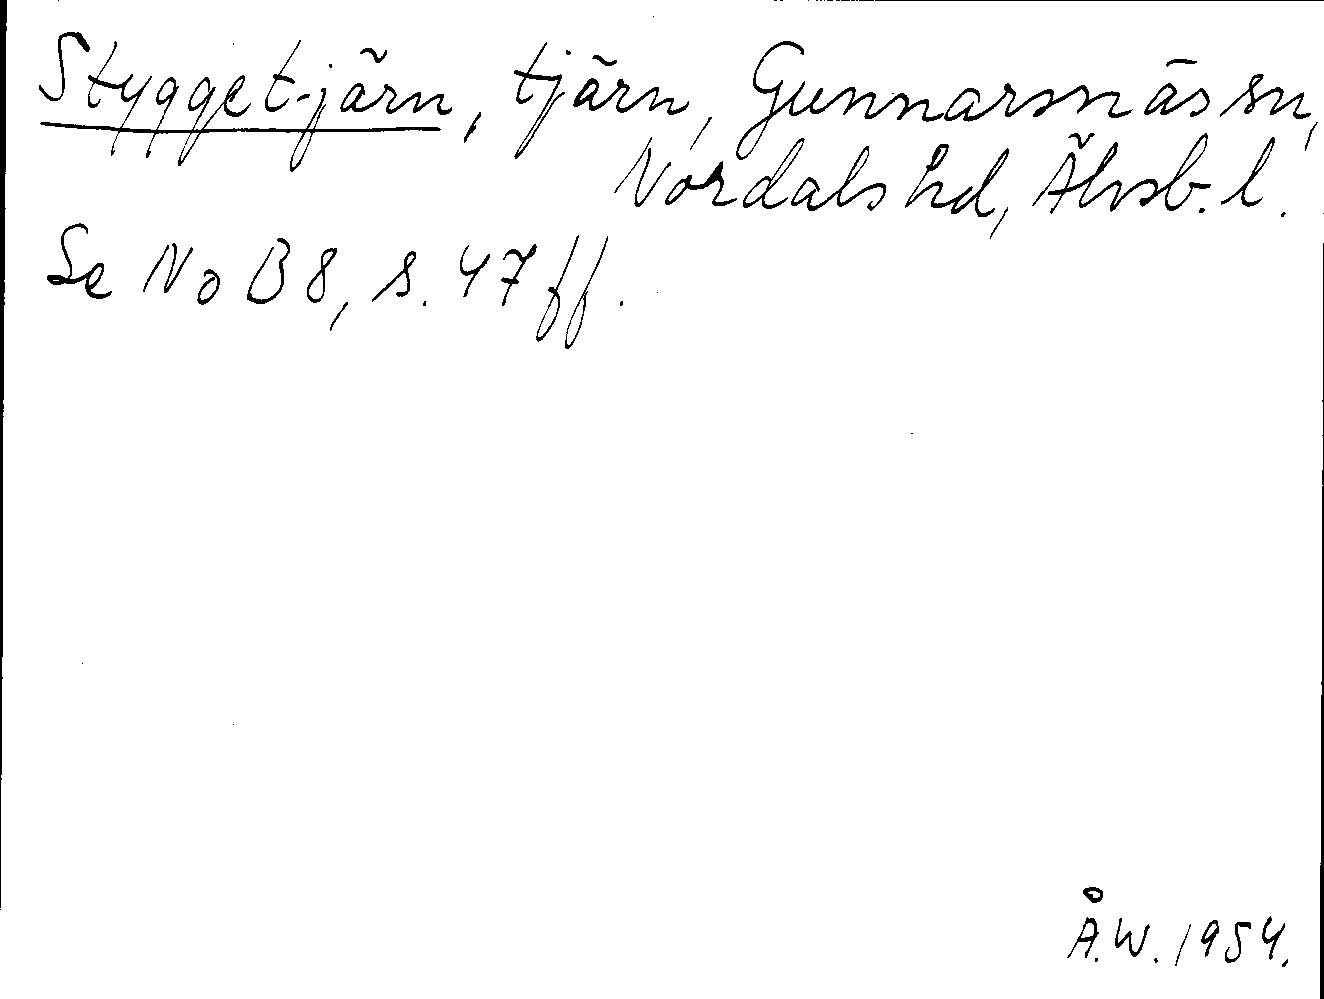 Styggetjärn, tjärn, Gunnarsnäs sn,
Nordals hd, Älvsb. l.
Se NoB 8, s. 47 ff.
Å.W. 1954.